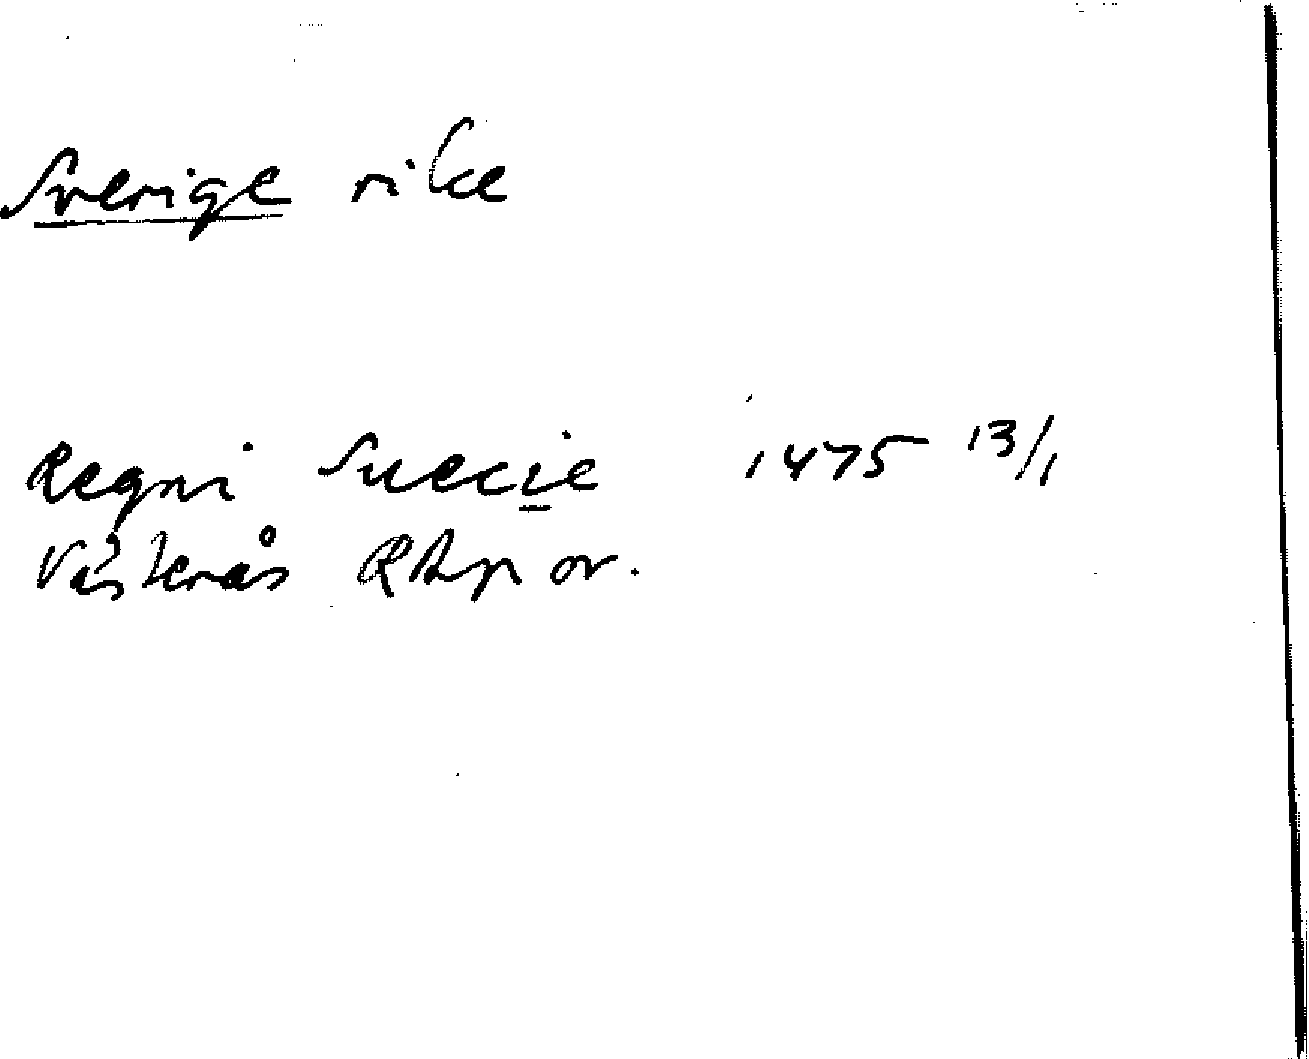 Sverige rike
Regni Suecie 1475 13/1
Västerås RAp or.